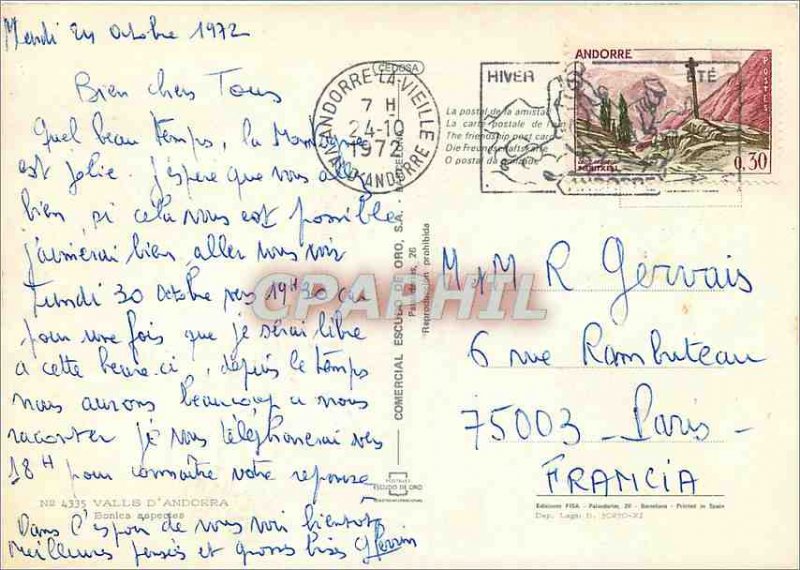 Mardi 24 Octobre 1972
Bien chers Tous
Quel beau temps, la Montagne
est jolie. J'espère que vous allez
bien, si cela vous est possible
j'aimerai bien aller vous voir
Lundi 30 Octobre vers 19H30 car
pour une fois que je serai libre
a cette heure-ci, depuis le temps
nous aurons beaucoup a nous
raconter je vous téléphonerai vers
18H pour connaître votre reponse
Nº 4335 VALLS D'ANDORRA
Bonics aspectes
Dans l'espoir de vous voir bientot
meilleures pensées et grosses bises
CEDOSA
ANDORRE-LA-VIEILLE
7 H
24-10
1972
VAL D'ANDORRE
HIVER
ÉTÉ
ANDORRE
POSTES
0,30
La postal de la amistad
La carte postale de
The friendship post card
Die Freundschaftskarte
O postal da
COMERCIAL ESCUDO DE ORO, S.A.
26
Reproducción prohibida
CPAPHIL
M & M R Gervais
6 rue Rambuteau
75003 - Paris -
FRANCIA
ESCUDO DE ORO
Ediciones FISA - Palaudarias, 26 - Barcelona - Printed in Spain
Dep. Legal B.